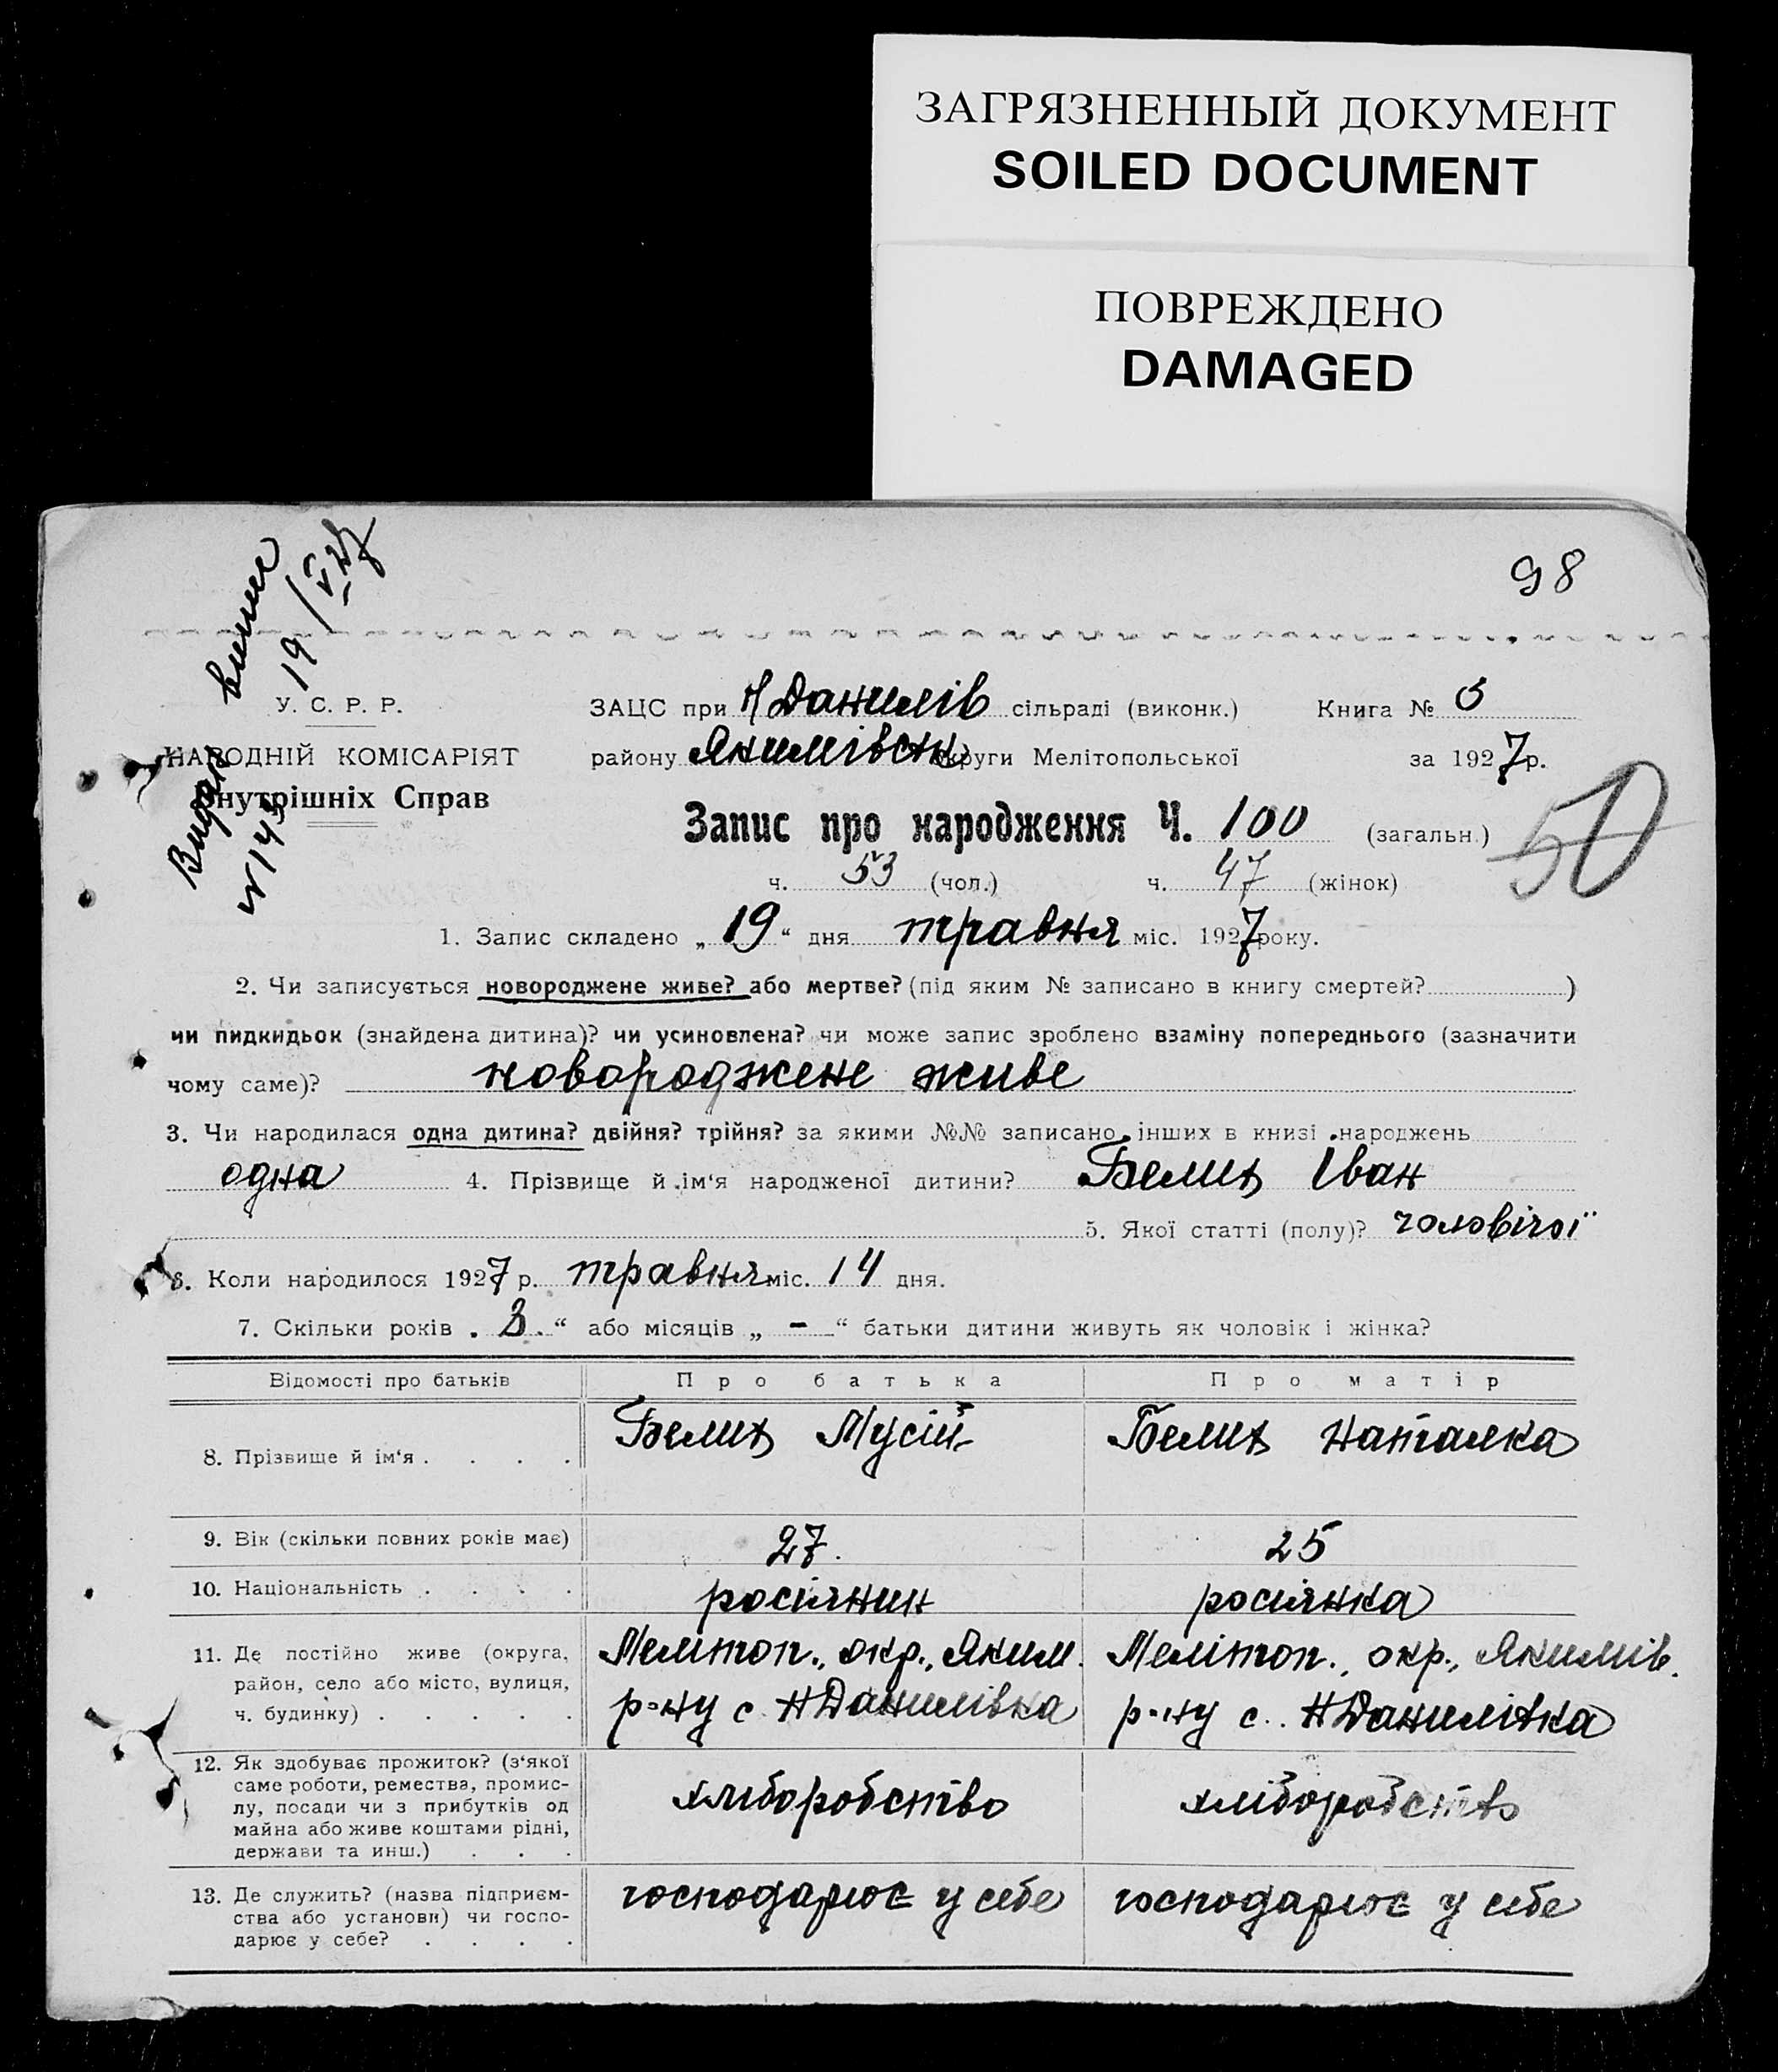 ЗАГРЯЗНЕННЫЙ ДОКУМЕНТ
SOILED DOCUMENT
ПОВРЕЖДЕНО
DAMAGED
98
Видан випис
№ 143 19/V 27
У. С. Р. Р.
НАРОДНІЙ КОМІСАРІЯТ
Внутрішніх Справ
ЗАЦС при Н Данилів сільраді (виконк.) Книга №
району Якимівськ округи Мелітопольської за 1927 р.
Запис про народження Ч. 100 (загальн.)
50
ч. 53 (чол.) ч. 47 (жінок)
1. Запис складено „19“ дня травня міс. 1927 року.
2. Чи записується новороджене живе? або мертве? (під яким № записано в книгу смертей? )
чи пидкидьок (знайдена дитина)? чи усиновлена? чи може запис зроблено взаміну попереднього (зазначити
чому саме)? новороджене живе
3. Чи народилася одна дитина? двійня? трійня? за якими №№ записано інших в книзі народжень
одна 4. Прізвище й ім‘я народженої дитини? Белих Іван
5. Якої статті (полу)? чоловічої
6. Коли народилося 1927 р. травня міс. 14 дня.
7. Скільки років „3“ або місяців „ – “ батьки дитини живуть як чоловік і жінка?
Відомості про батьків Про батька Про матір
8. Прізвище й ім‘я . . . . Белих Мусій Белих Наталка
9. Вік (скільки повних років має) 27. 25
10. Національність . . . . росіянин росіянка
11. Де постійно живе (округа, Мелітоп., окр., Яким. Мелітоп., окр., Якимів.
район, село або місто, вулиця,
ч. будинку) . . . . . р-ну с. Н Данилівка р-ну с. Н Данилівка
12. Як здобуває прожиток? (з‘якої
саме роботи, ремества, промис-
лу, посади чи з прибутків од хліборобство хліборобство
майна або живе коштами рідні,
держави та инш.) . . .
13. Де служить? (назва підприєм- господарює у себе господарює у себе
ства або установи) чи госпо-
дарює у себе? . . . .